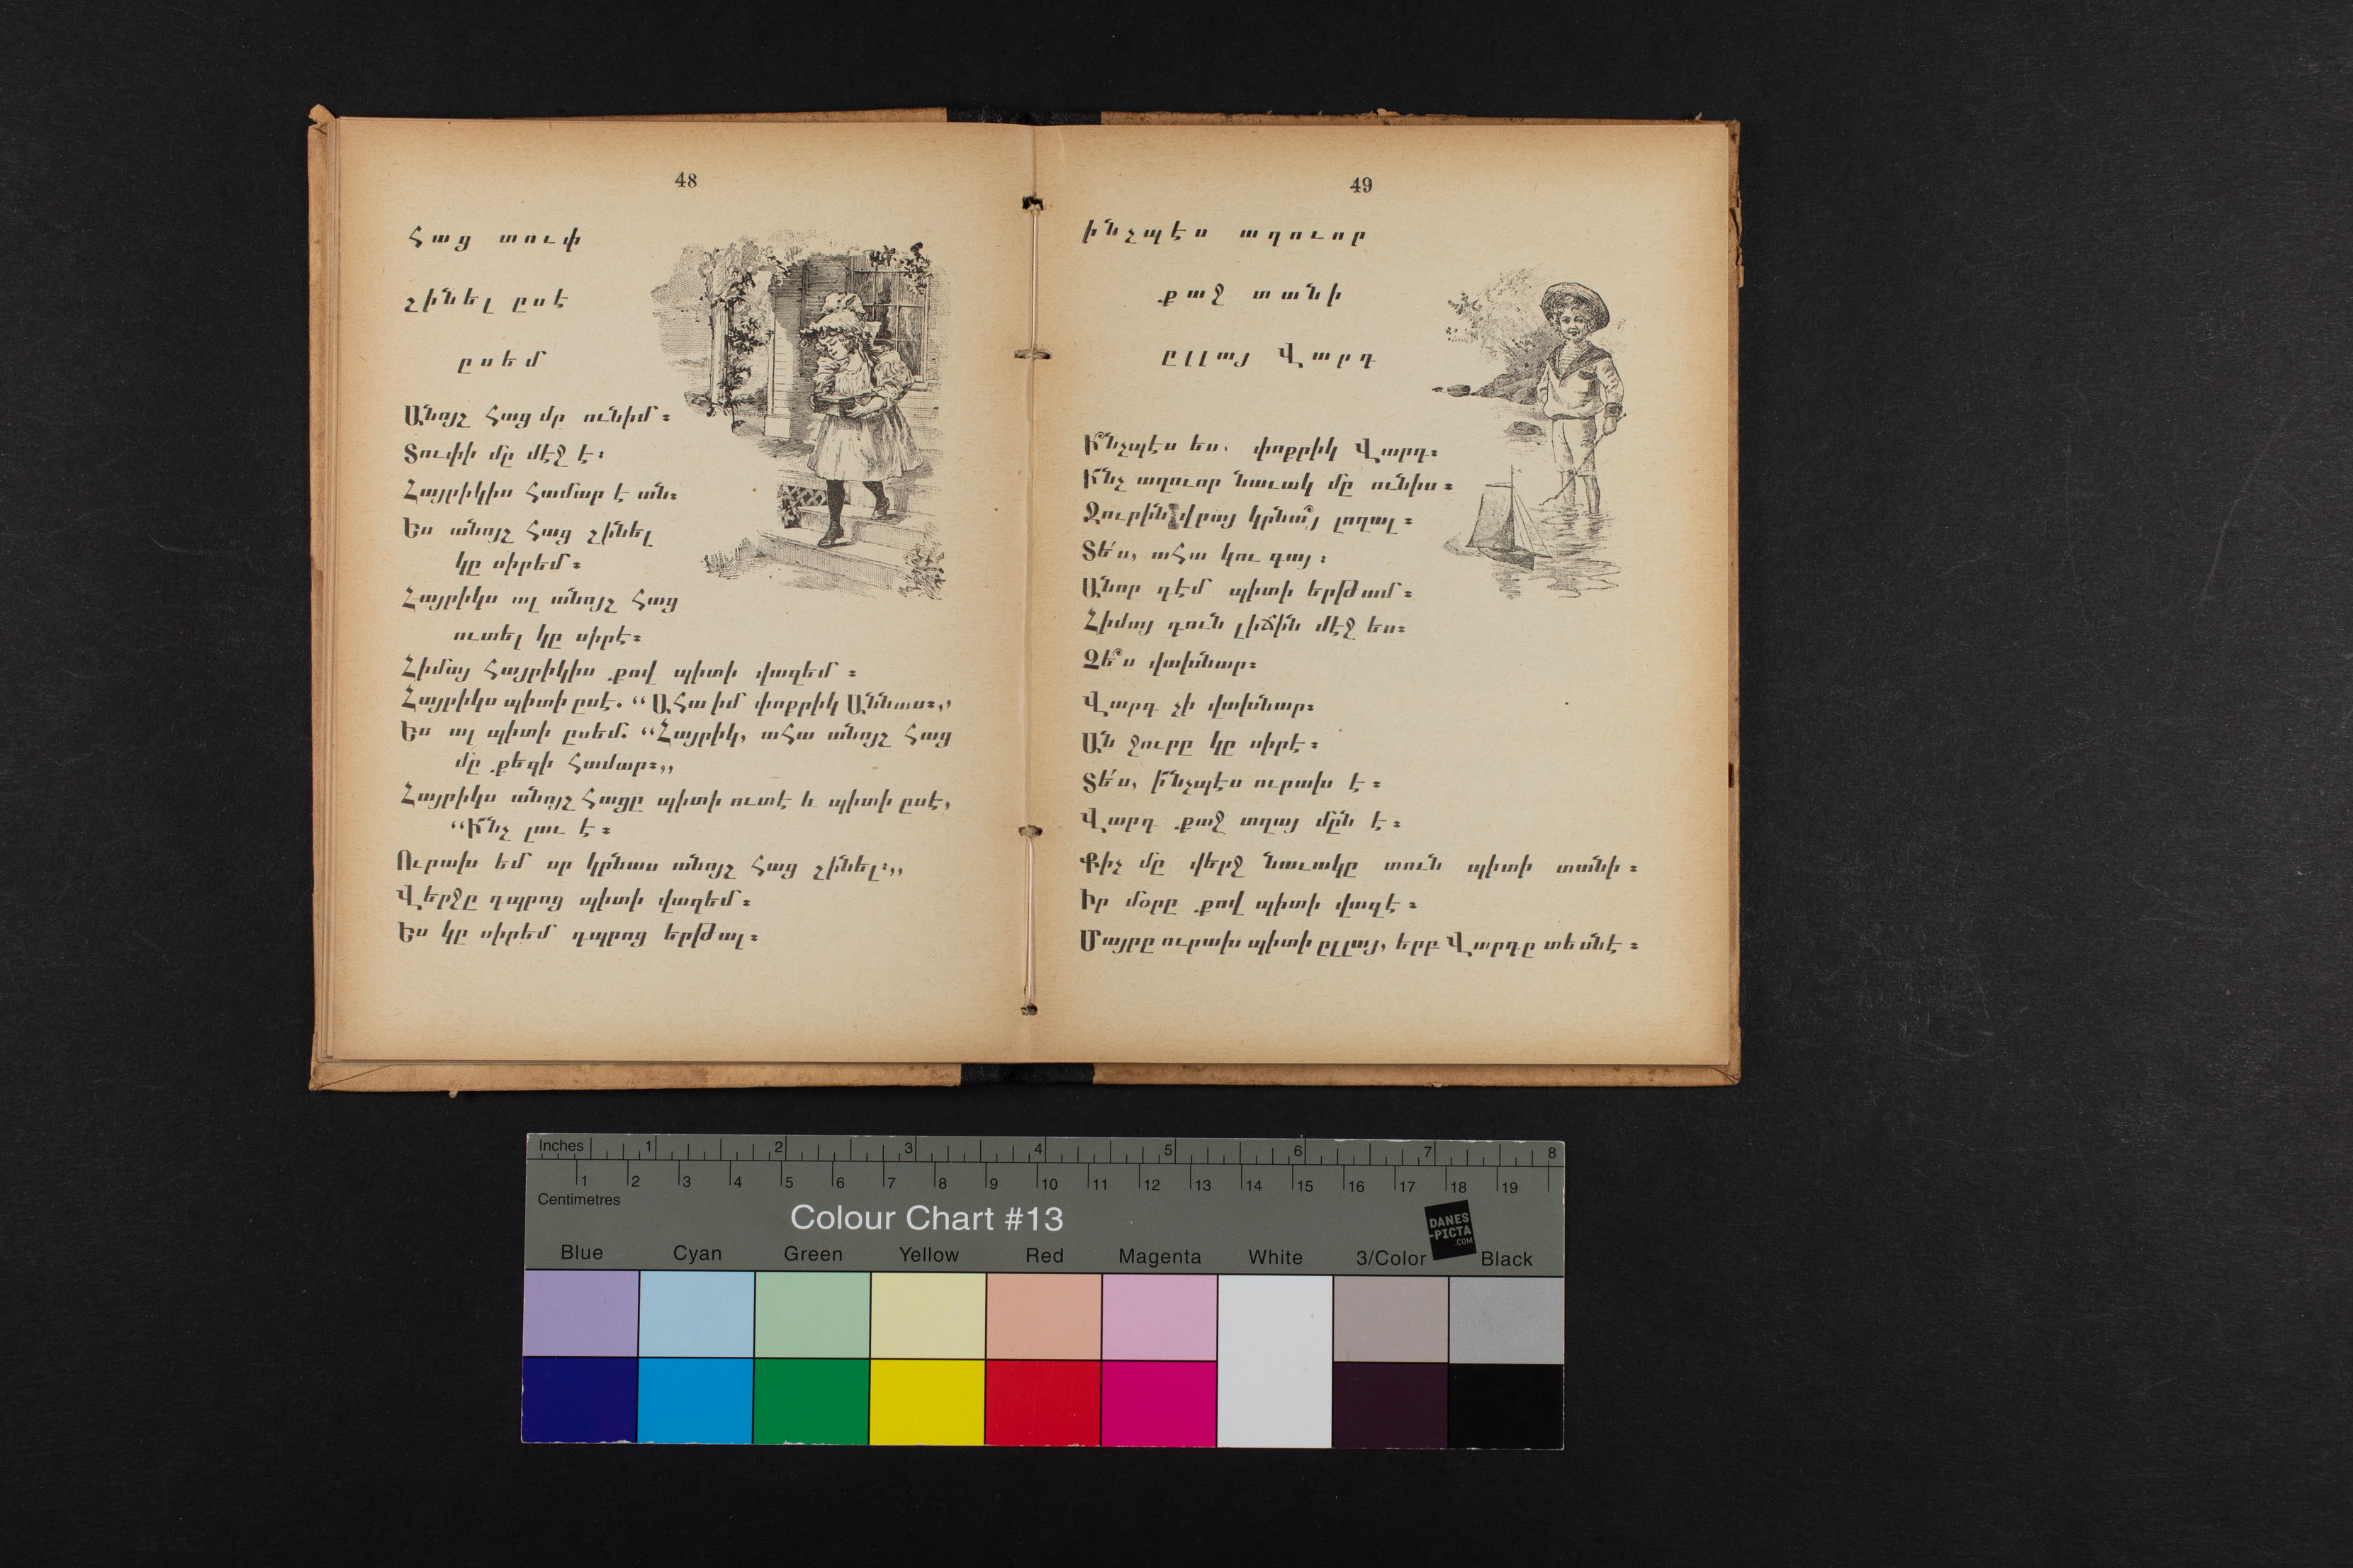 48
հաց տուփ
շինել ըսէ
ըսեմ
Անոյշ հաց մը ունիմ։
Տուփի մը մէջ է։
Հայրիկիս համար է ան։
Ես անոյշ հաց շինել
կը սիրեմ։
Հայրիկս ալ անոյշ հաց
ուտել կը սիրէ։
Հիմայ հայրիկիս քով պիտի վազեմ։
Հայրիկս պիտի ըսէ. “Ահա իմ փոքրիկ Աննաս։„
Ես ալ պիտի ըսեմ. “Հայրիկ, ահա անոյշ հաց
մը քեզի համար։„
Հայրիկս անոյշ հացը պիտի ուտէ և պիտի ըսէ,
“Ի՜նչ լաւ է։
Ուրախ եմ որ կրնաս անոյշ հաց շինել։„
Վերջը դպրոց պիտի վազեմ։
Ես կը սիրեմ դպրոց երթալ։
49
ինչպէս աղուոր
քաջ տանի
ըլլայ Վարդ
Ի՞նչպէս ես. փոքրիկ Վարդ։
Ի՜նչ աղուոր նաւակ մը ունիս։
Ջուրին վրայ կրնա՞յ լողալ։
Տե՛ս, ահա կու գայ։
Անոր դէմ պիտի երթամ։
Հիմայ դուն լիճին մէջ ես։
Չե՞ս վախնար։
Վարդ չի վախնար։
Ան ջուրը կը սիրէ։
Տե՛ս, ի՜նչպէս ուրախ է։
Վարդ քաջ տղայ մըն է։
Քիչ մը վերջ նաւակը տուն պիտի տանի։
Իր մօրը քով պիտի վազէ։
Մայրը ուրախ պիտի ըլլայ, երբ Վարդը տեսնէ։
Inches 1 2 3 4 5 6 7 8
1 2 3 4 5 6 7 8 9 10 11 12 13 14 15 16 17 18 19
Centimetres
Colour Chart #13
DANES
-PICTA
.COM
Blue Cyan Green Yellow Red Magenta White 3/Color Black